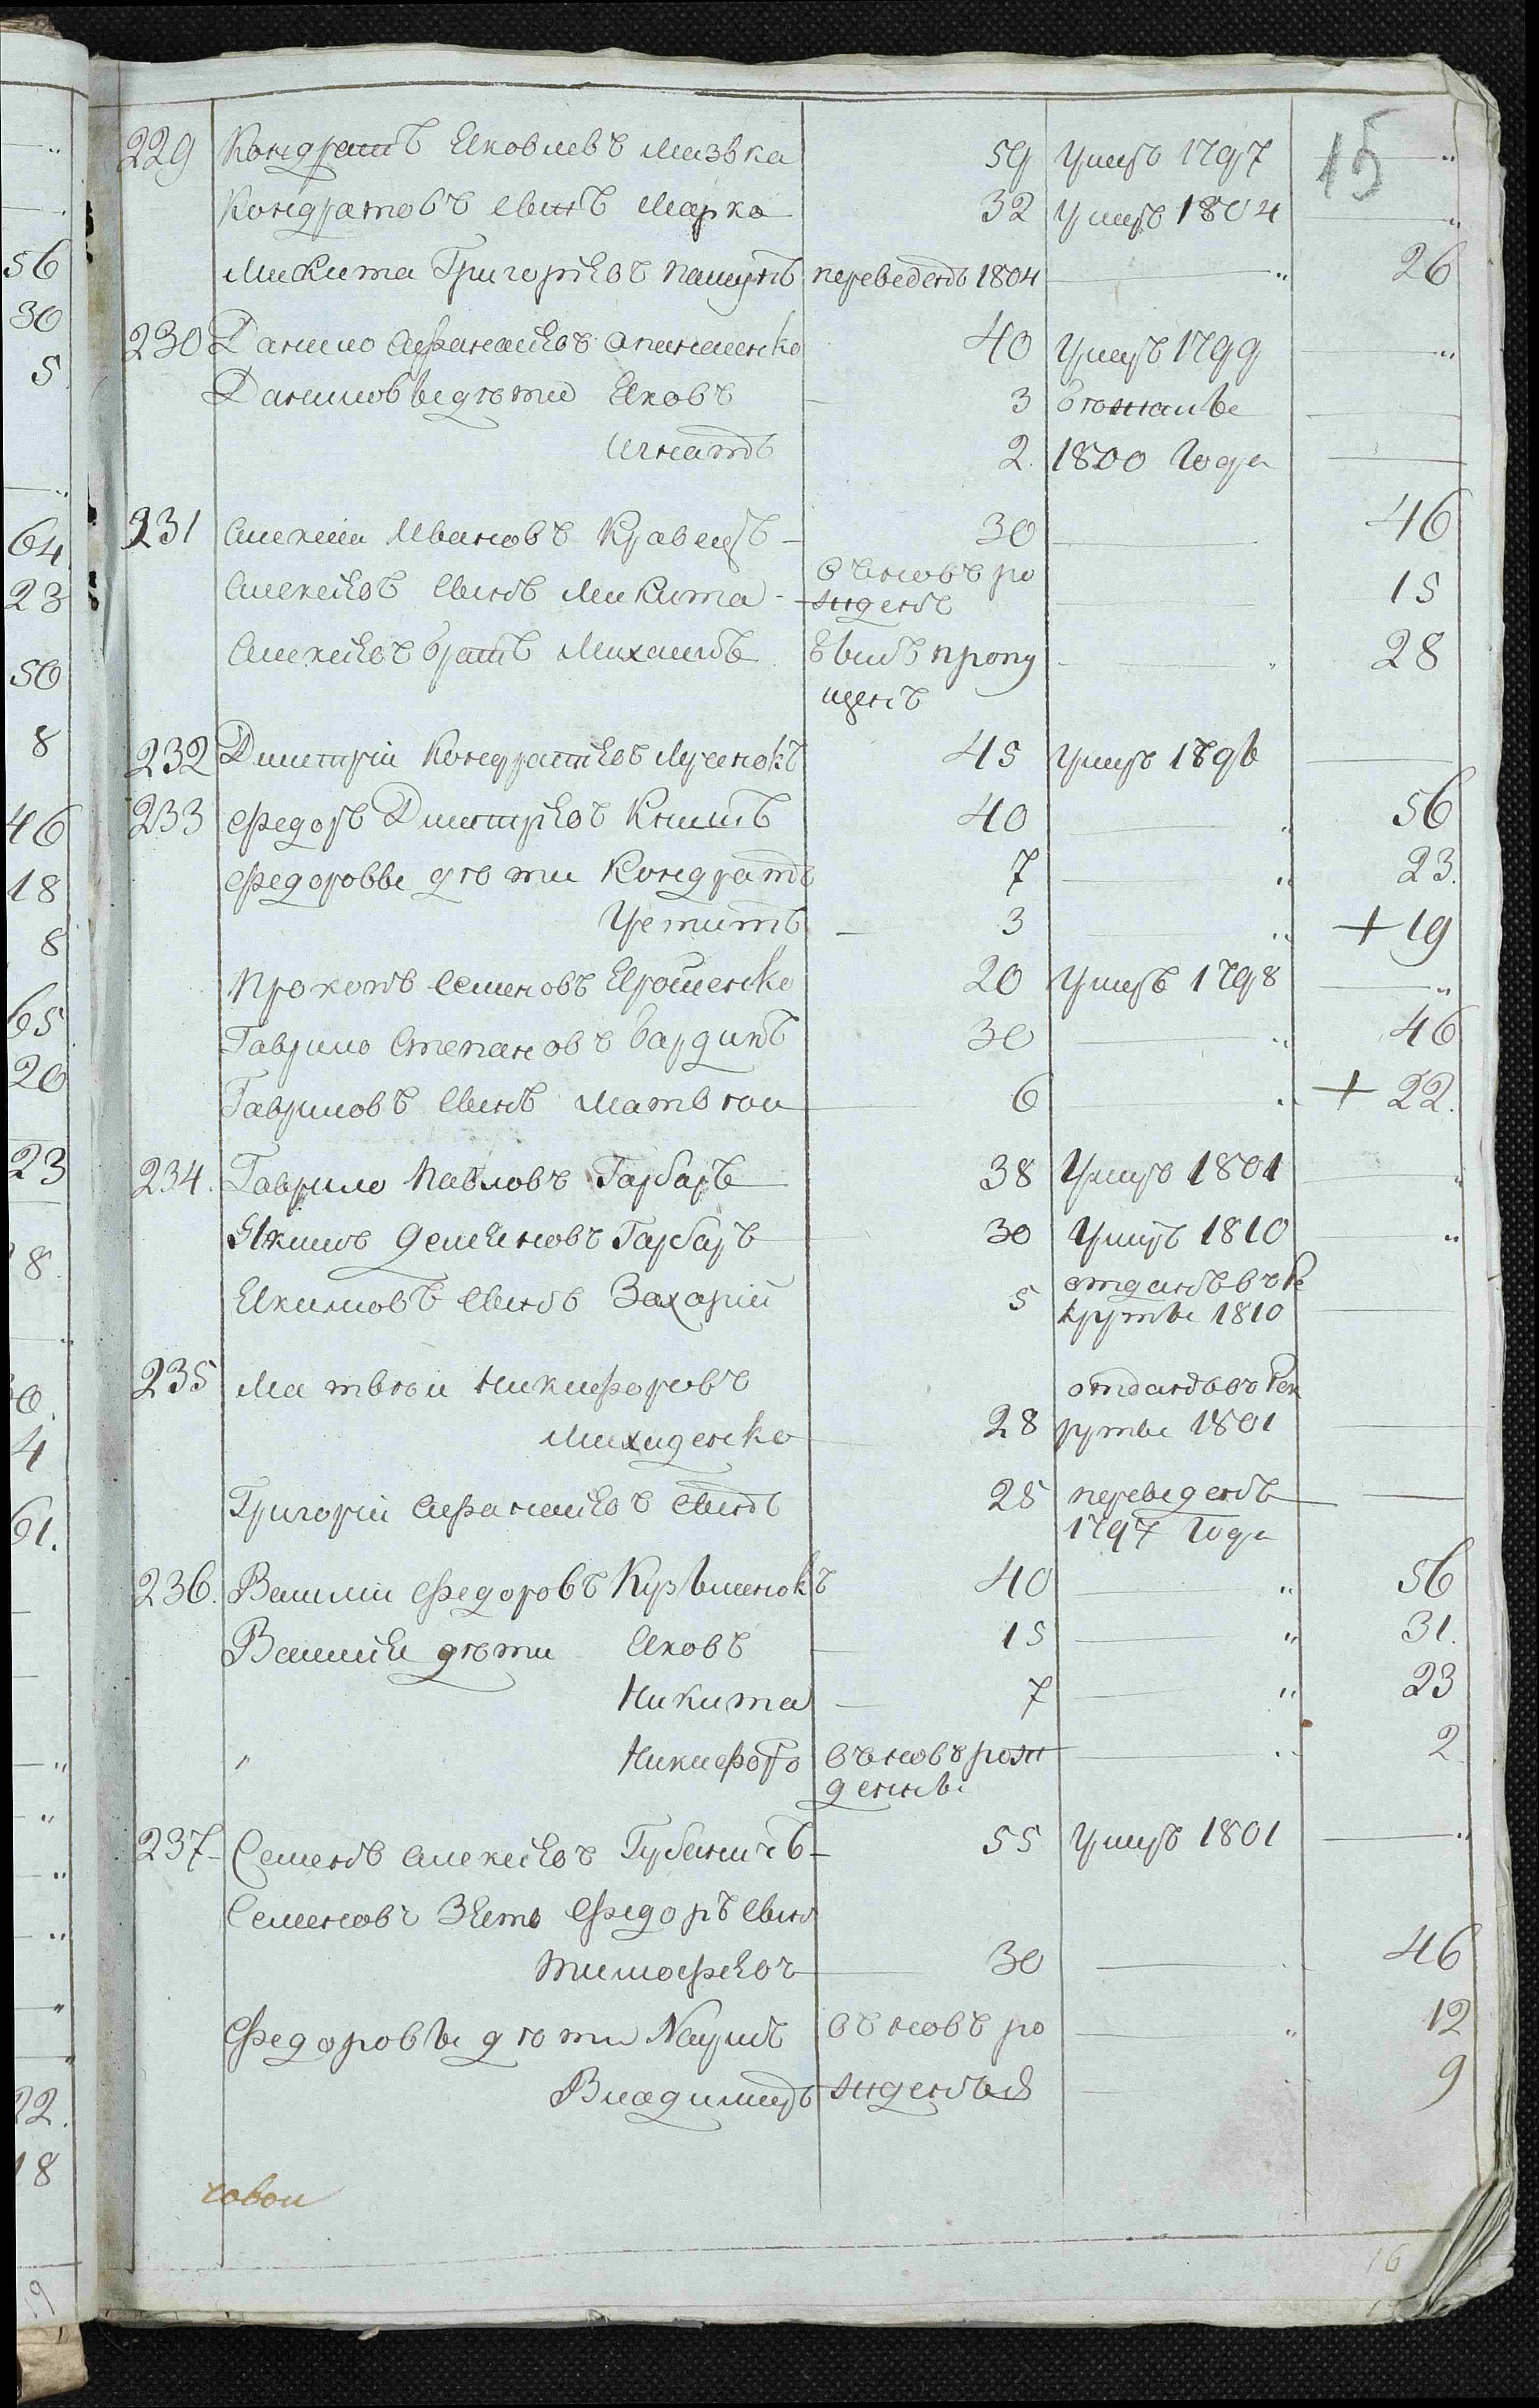 15
229 Кондратъ Яковлевъ Мазвка 59 Умеръ 1797
Кондратовъ сынъ Марко 32 Умеръ 1804
Микита Григорьевъ переведенъ 1804 26
230 Данило Афанасьевъ 40 Умеръ 1799
Даниловы дѣти Яковъ 3
Игнатъ 2. 1800 Года
231 Алексѣй Ивановъ Кравецъ 30 46
Алексѣевъ сынъ Микита въ новъ ро 15
жденъ
Алексѣевъ братъ Михаилъ Былъ пропу 28
щенъ
232 Дмитрій Кондратьевъ Луценокъ 45 Умеръ
233 Федоръ Дмитріевъ Кнышъ 40 56
Федоровы дѣти Кондратъ 7 23.
3 + 19
Прокопъ Семеновъ Ярошенко 20 Умеръ 1798
Гаврило Степановъ Бардикъ 30 46
Гавриловъ сынъ Матвѣй 6 + 22.
234. Гаврило Павловъ Гарбаръ 38 Умеръ 1801
Якимъ Деменковъ Гарбаръ 30 Умеръ 1810
Якимовъ сынъ Захарій 5 отданъ въ ре
круты 1810
235 Матвѣй Никифоровъ отданъ въ рек
Михиденко 28 руты 1801
Григорій Афанасьевъ сынъ 25 переведенъ
1797 Года
236. Василій Федоровъ 40 56
Васильевы дѣти Яковъ 15 31.
Никита 7 23
" Никифоръ въ новъ рож 2
денны
237 Семенъ Алексѣевъ 55 Умеръ 1801
Семеновъ Зять Федоръ сынъ
Тимофѣевъ 30 46
Федоровы дѣти Наумъ въ новъ ро 12
Владимиръ жденныя 9
16